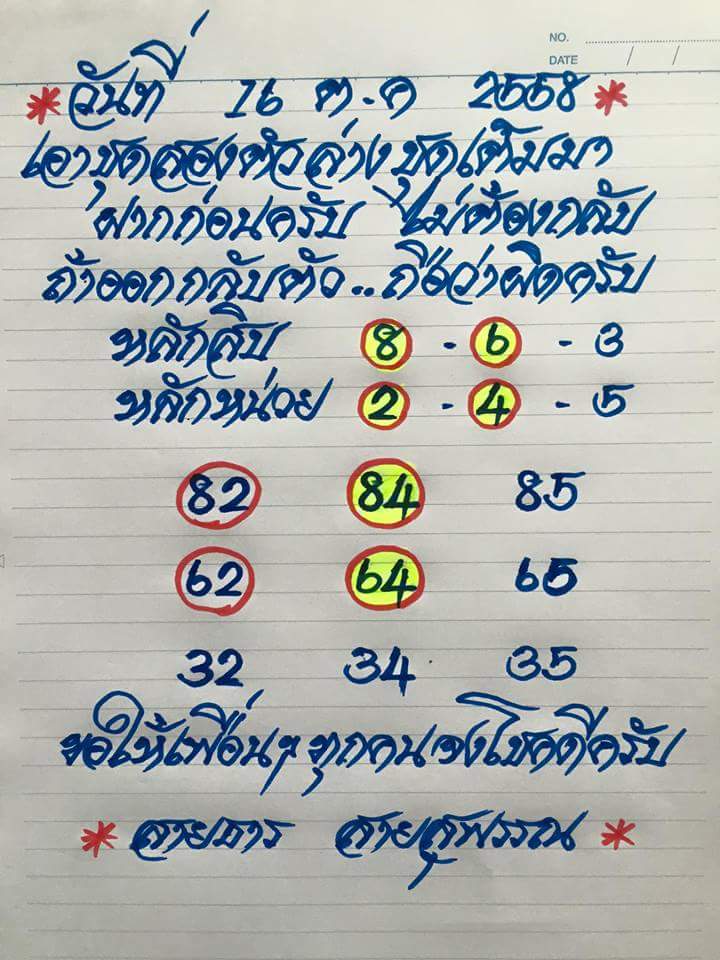 NO.
DATE / /
* วันที่ 16 ต.ค 2558 *
เอาชุดสองตัวล่างชุดเต็มมา
ฝากก่อนครับ ไม่ต้องกลับ
ถ้าออกกลับตัว..ถือว่าผิดครับ
หลักสิบ 8 - 6 - 3
หลักหน่วย 2 - 4 - 5
82 84 85
62 64 65
32 34 35
ขอให้เพื่อนๆทุกคนจงโชคดีครับ
* สายธาร สายสุพรรณ *